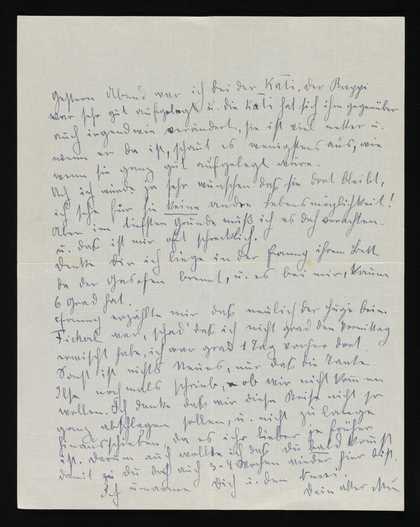 Gestern Abend war ich bei der Kati. Der Pappi
war sehr gut aufgelegt u. die Kati hat sich ihm gegenüber
auch irgendwie verändert, sie ist viel netter u.
wenn er da ist, schaut es wenigstens aus, wie
wenn sie ganz gut aufgelegt wäre.
Ach ich würde ja sehr wünschen daß sie dort bleibt,
ich sehe für sie keine andre Lebensmöglichkeit!
Aber im tiefsten Grunde muß ich es doch verachten
u. das ist mir oft schrecklich.
Denke Dir ich liege in der Franzy ihrem Bett
da der Gasofen brennt, u. es bei mir, kaum
6 Grad hat.
Franzy erzählte mir daß neulich der beim
Fickerl war, schad' daß ich nicht grad den Vormittag
erwischt habe, ich war grad 1 Tag vorher dort.
Sonst ist nichts Neues, nur daß die Tante
Ilse nochmals schrieb, ob wir nicht kommen
wollen. Ich denke daß wir diese Reise nicht so
ganz abschlagen sollen, u. nicht zu lange
hinausschieben, da es ihr lieber je früher
ist. Darum auch wollte ich daß du bald kommst
damit du dich auch 3-4 Wochen wieder hier bist.
Ich umarme Dich u. den
Dein alter